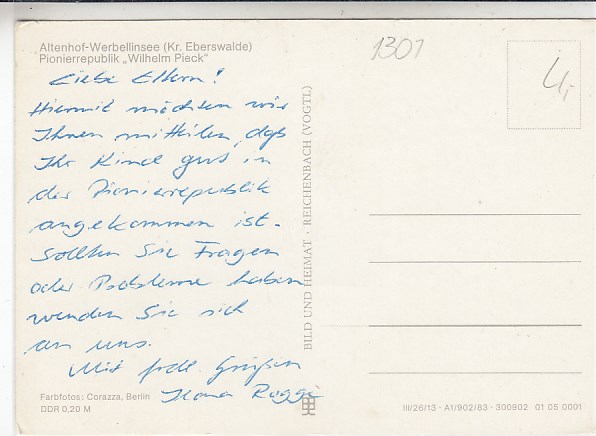 Altenhof-Werbellinsee (Kr. Eberswalde)
Pionierrepublik „Wilhelm Pieck"
Liebe Eltern!
Hiermit möchten wir
Ihnen mitteilen, daß
Ihr Kind gut in
der Pionierrepublik
angekommen ist.
Sollten Sie Fragen
oder Probleme haben
wenden Sie sich
an uns.
Mit frdl. Grüßen
Ilona
Farbfotos: Corazza, Berlin
DDR 0,20 M
BILD UND HEIMAT · REICHENBACH (VOGTL)
1301
4,-
III/26/13 · A1/902/83 · 300902 01 05 0001